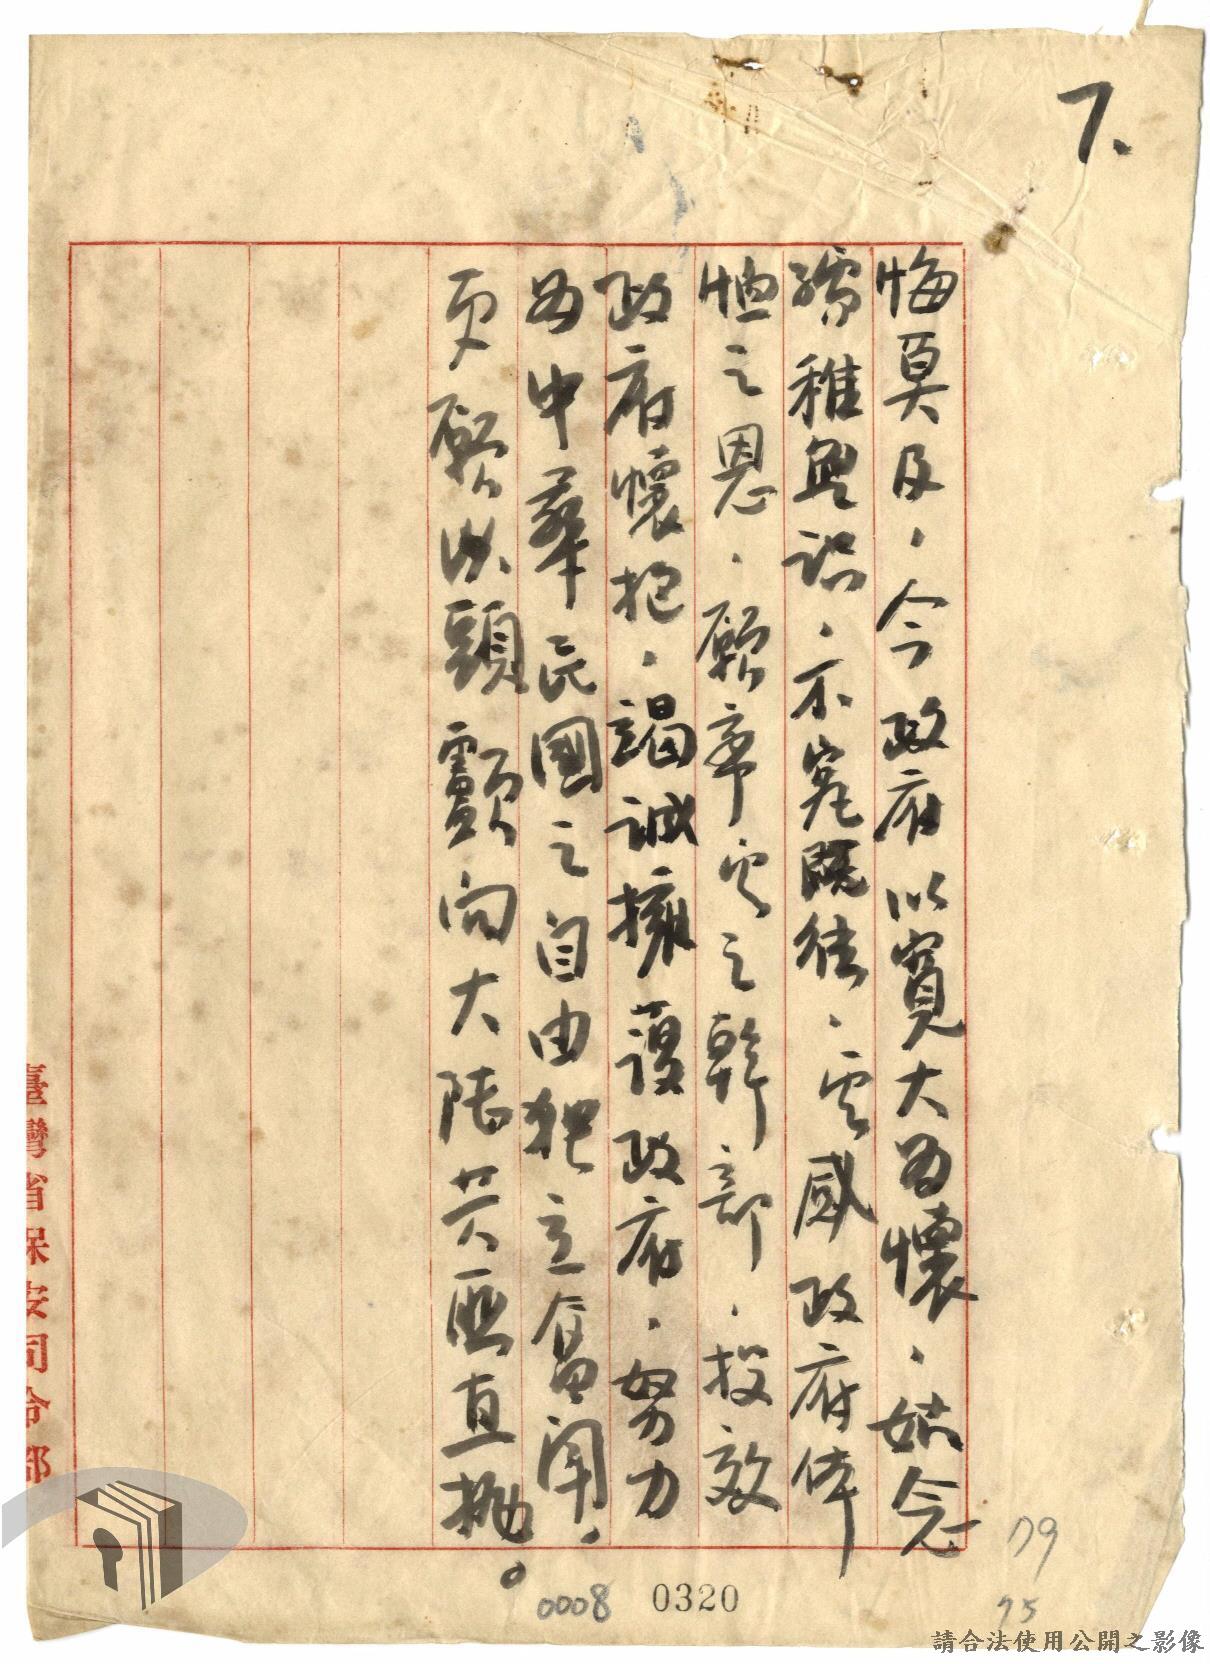 7、
悔莫及，今政府以寬大為懷，姑念
孺稚無識，不究既往，實感政府体
恤之恩，願率實之幹部，投效
政府懷抱，竭誠擁護政府，努力
為中華民國之自由独立奮鬥，
更願以頭顱向大陸共匪直拋。
臺灣省保安司令部
0008
0320
79
75
請合法使用公開之影像